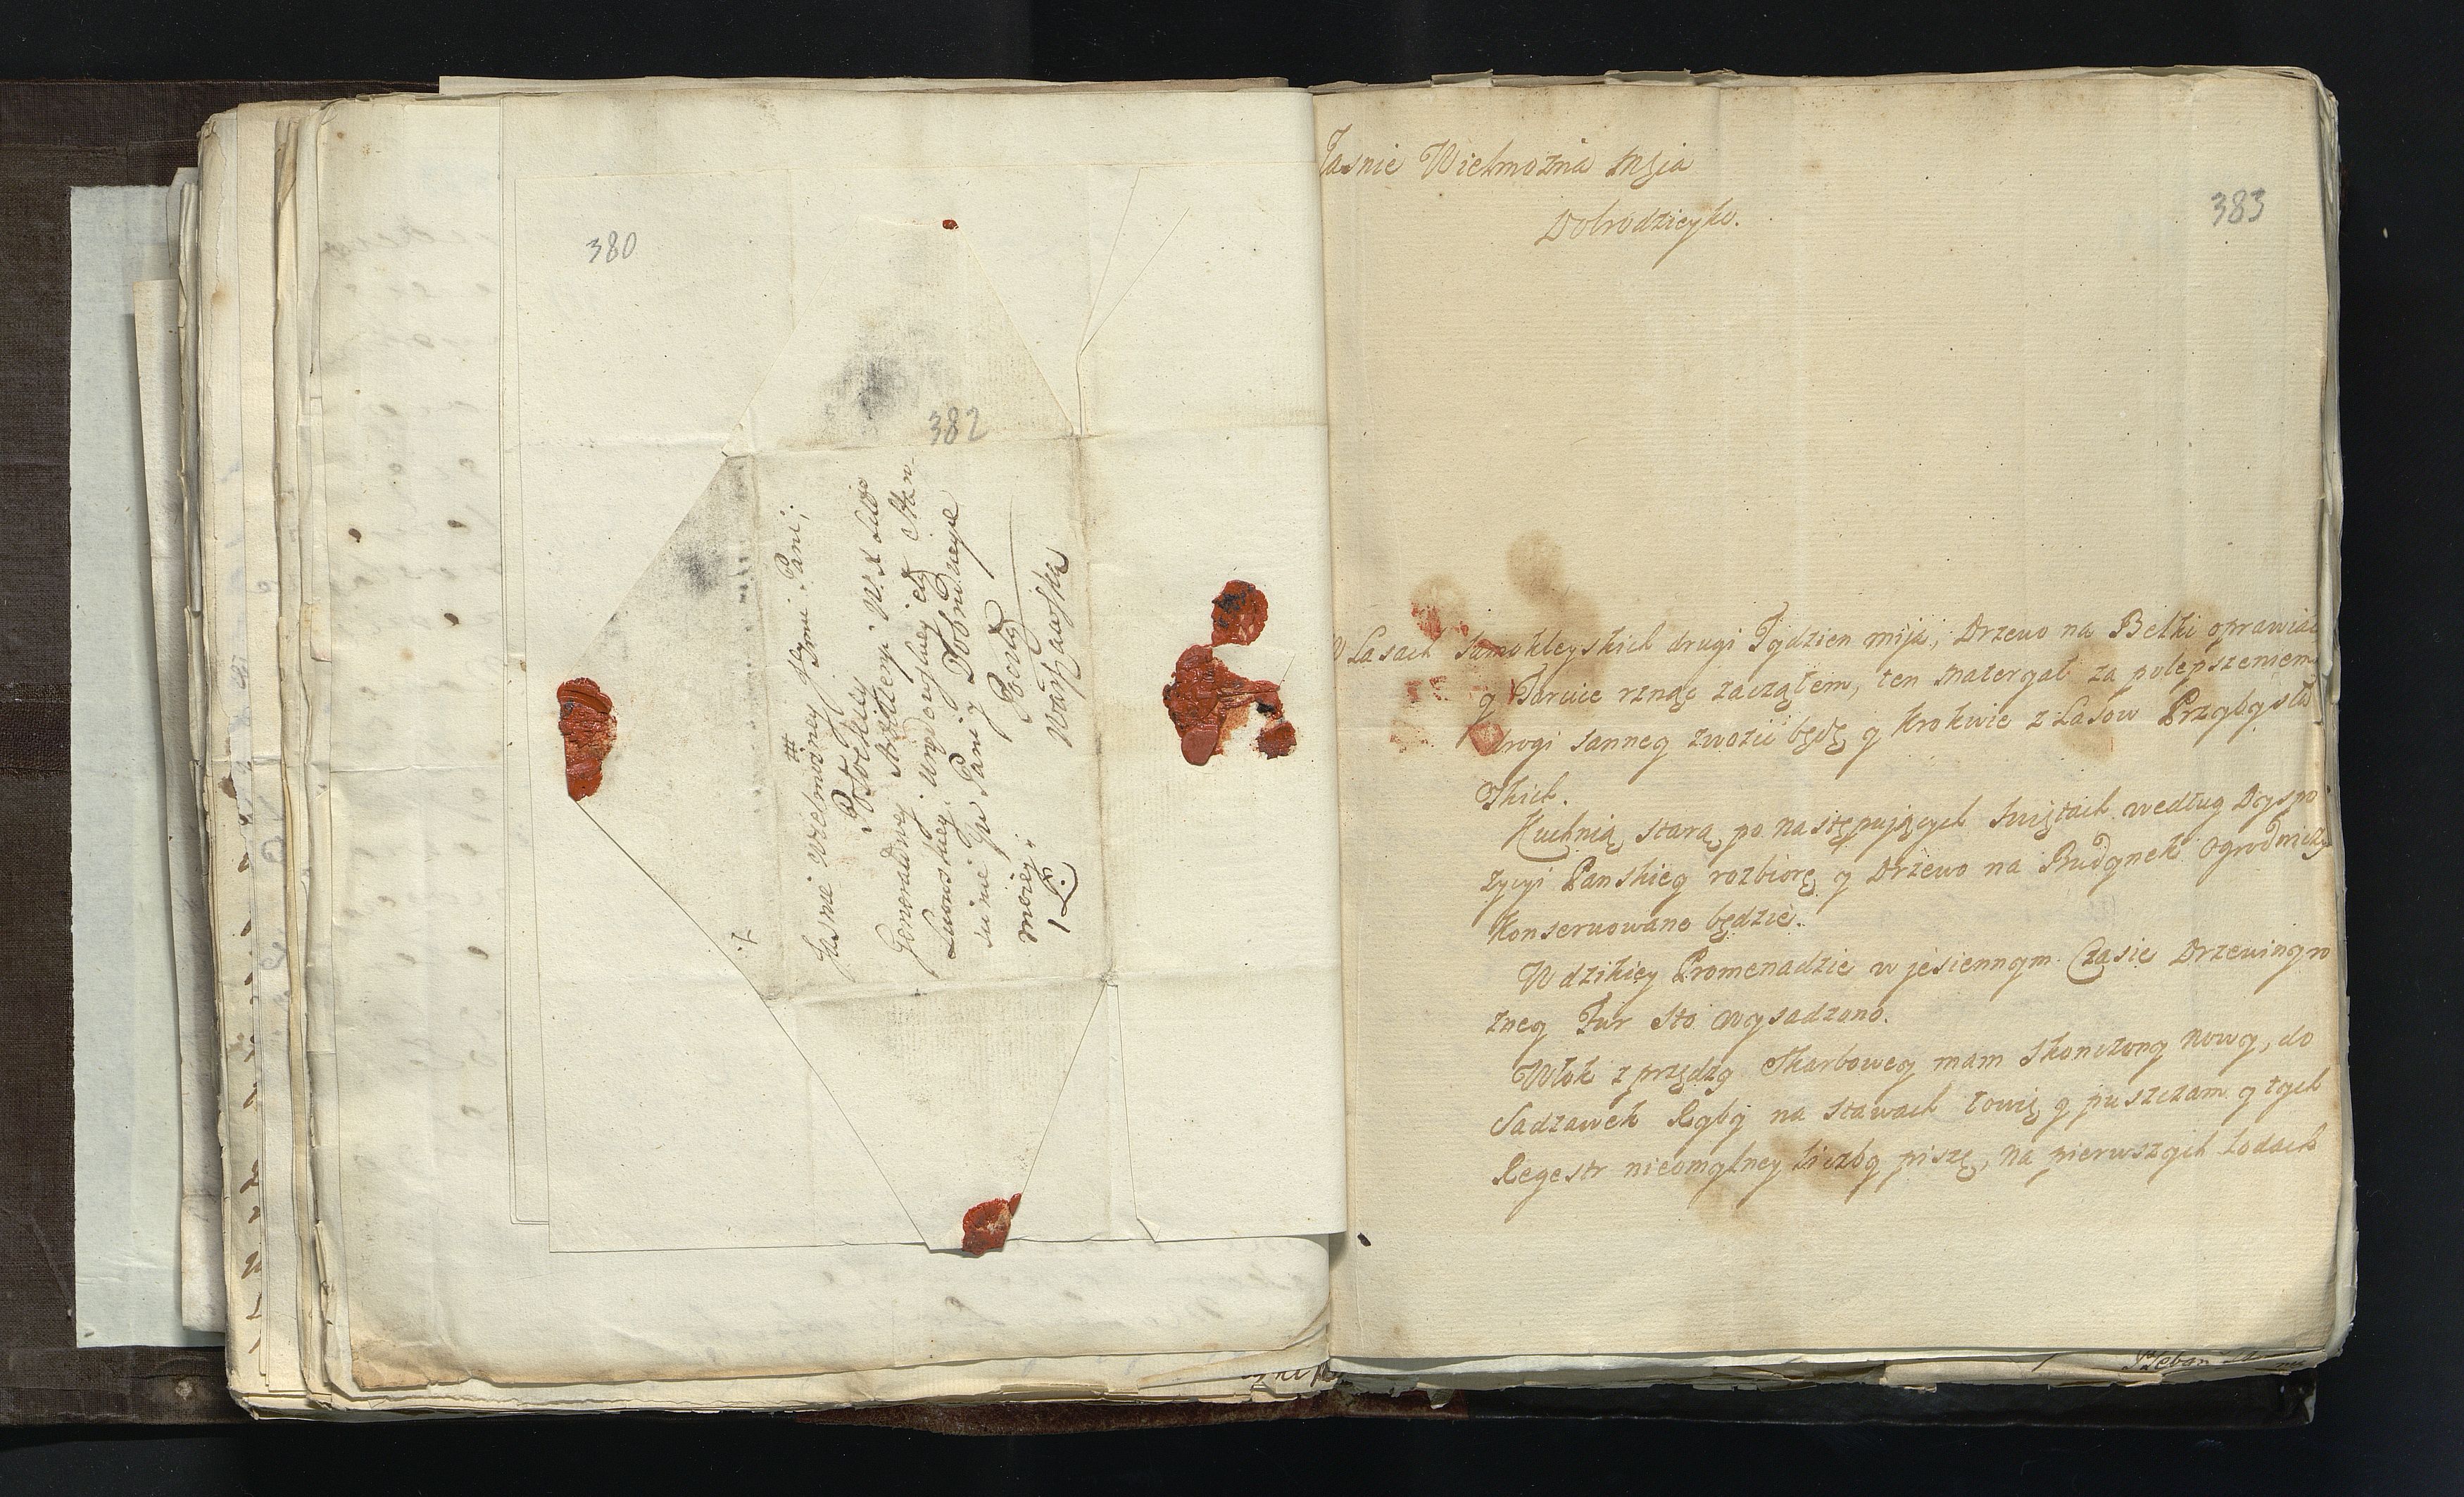 380
382
Jasnie Wielmożney Jeymci Pani;
Potockiey
Generałowej Artilleryi W. X. Litt
Lwowskiey
Pani y Dobrodzieyce
moiey;
383
Jasnie Wielmożna Mẹia
Dobrodzieyko.
W Lasach Samokleyskich drugi Tydzien mija, Drzewo na Belki oprawiac
y Tarcice rznąc zacząłem, ten Materyał za polepszeniem
drogi sanney zwozić będę y Krokwie z Lasow Przybysław
Skich.
Kuchnią starą po następujących Swiętach według Dyspo
zycyi Panskiey rozbiorę y Drzewo na Budynek Ogrodniczy
Konserwowane będzie.
W dzikiey Promenadzie w jesiennym Czasie Drzewiny ro
zney Fur Sto wysadzono.
Włok z przędzy Skarbowey mam Skonczony nowy, do
Sadzawek Ryby na Stawach łowię y puszczam y tych
Regestr nieomylney liczby piszę, na pierwszych lodach